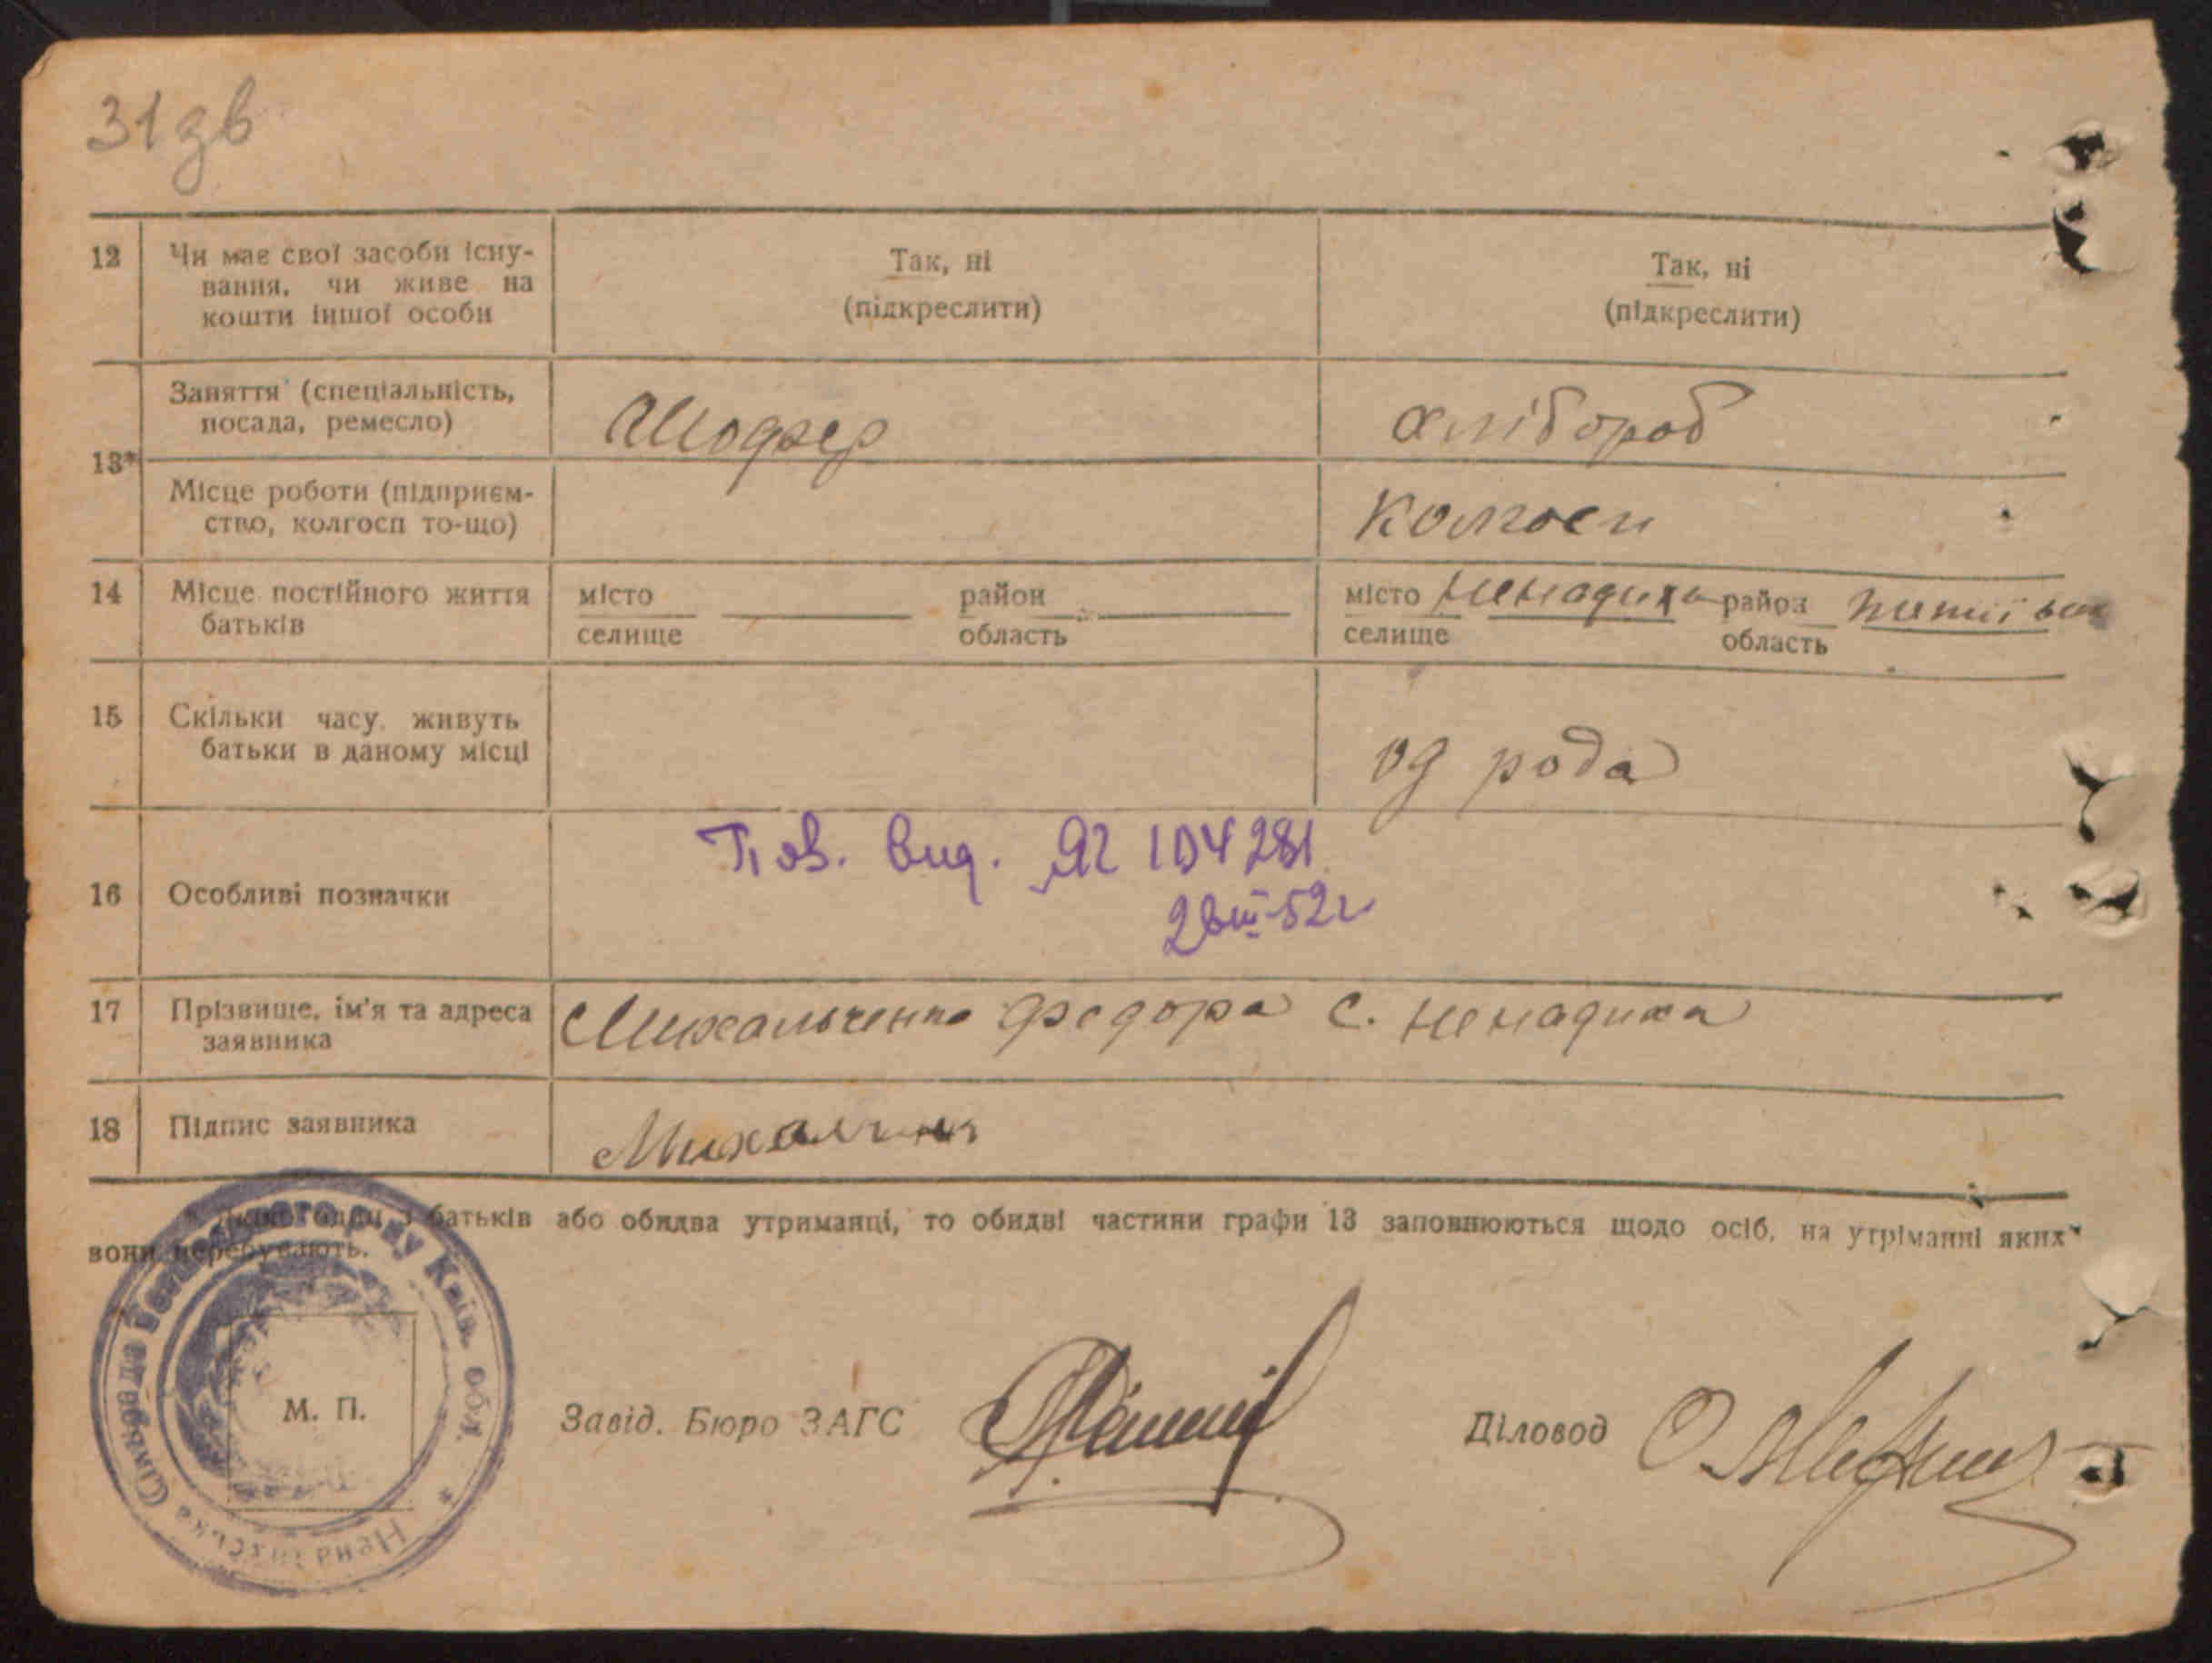 31зв
12 Чи має свої засоби існу- Так, ні Так, ні
вання, чи живе на (підкреслити) (підкреслити)
кошти іншої особи
13* Заняття (спеціальність, Шофер хлібороб
посада, ремесло)
Місце роботи (підприєм- колгосп
ство, колгосп то-що)
14 Місце постійного життя місто район місто Ненадиха район
батьків селище область селище область
15 Скільки часу живуть од рода
батьки в даному місці
16 Особливі позначки Пов. вид. ЯГ 104281
28 III-52г
17 Прізвище, ім'я та адреса Михальченко Федора с. Ненадиха
заявника
18 Підпис заявника
* батьків або обидва утриманці, то обидві частини графи 13 заповнюються щодо осіб, на утріманні яких
вони перебувають.
М. П. Завід. Бюро ЗАГС Діловод
Київ. обл.